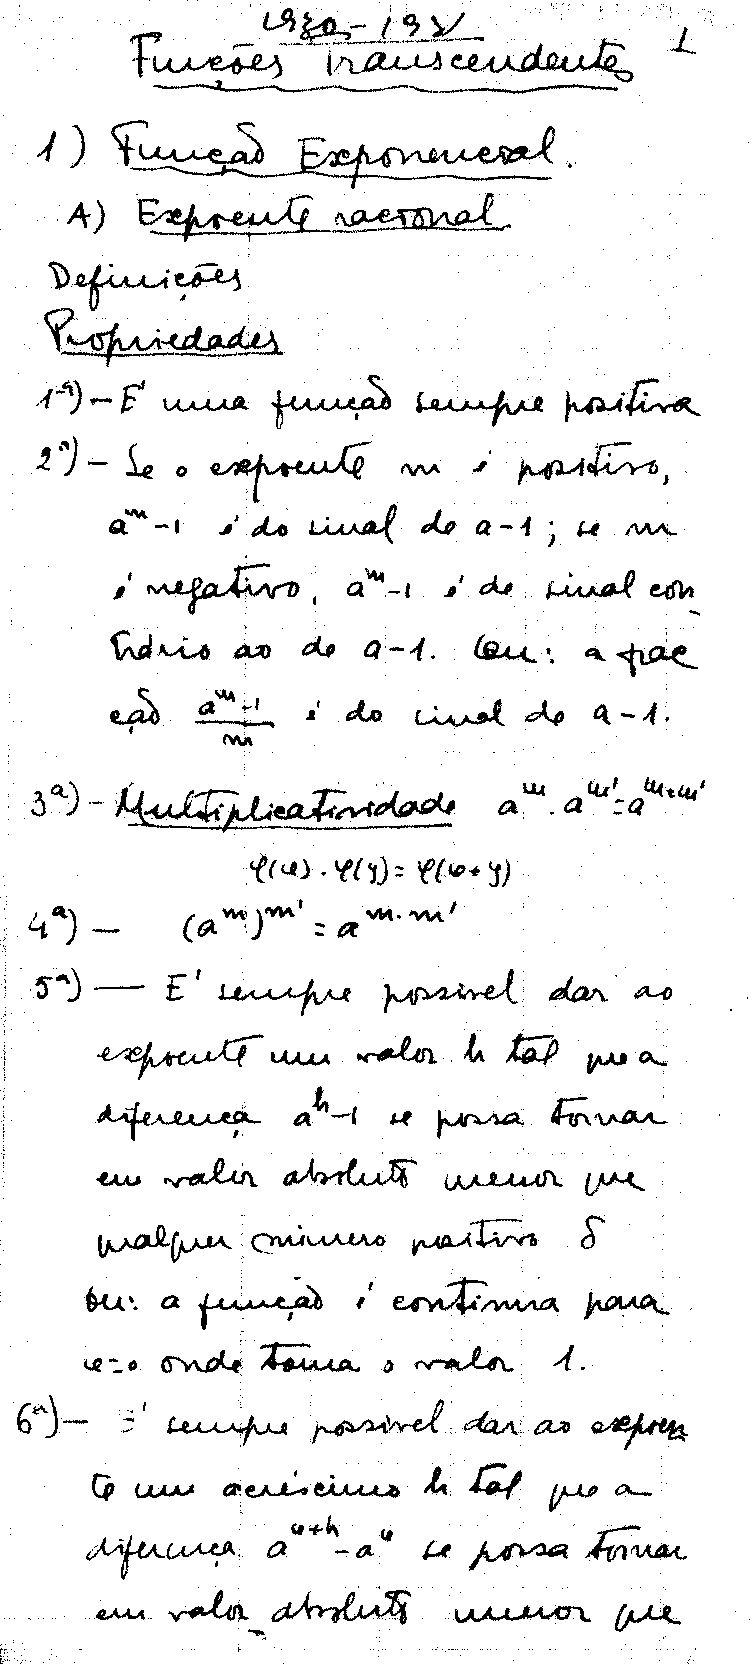 1930-193
1
Funções transcendentes
1) Função Exponencial.
A) Expoente racional
Definições
Propriedades
1ª) - É uma função sempre positiva
2ª) - Se o expoente m é positivo,
a^m-1 é do sinal de a-1; se m
é negativo, a^m-1 é de sinal con
trário ao de a-1. Ou: a frac
ção (a^m-1)/m é do sinal de a-1.
3ª) - Multiplicatividade a^m . a^m' = a^m+m'
φ(x) . φ(y) = φ(x+y)
4ª) - (a^m)^m' = a^m.m'
5ª) - É sempre possível dar ao
expoente um valor h tal que a
diferença a^h-1 se possa tornar
em valor absoluto menor que
qualquer número positivo δ
ou: a função é contínua para
x=0 onde toma o valor 1.
6ª) - É sempre possível dar ao expoen
te um acréscimo h tal que a
diferença a^x+h - a^x se possa tornar
em valor absoluto menor que